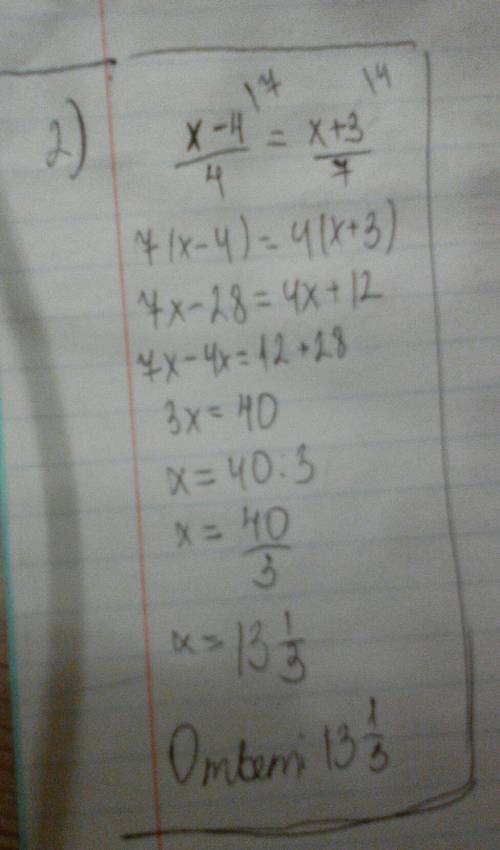 2)
x-4 |7 / 4 = x+3 |4 / 7
7(x-4)=4(x+3)
7x-28=4x+12
7x-4x=12+28
3x=40
x=40:3
x=40/3
x=13 1/3
Ответ 13 1/3